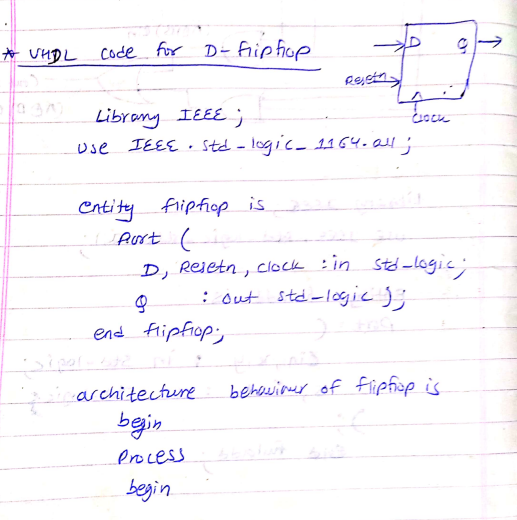 * VHDL code for D-flipflop
D Q
Resetn
clock
Library IEEE;
use IEEE.std_logic_1164.all;
entity flipflop is
Port (
D, Resetn, clock : in std_logic;
Q : out std_logic);
end flipflop;
architecture behaviour of flipflop is
begin
Process
begin